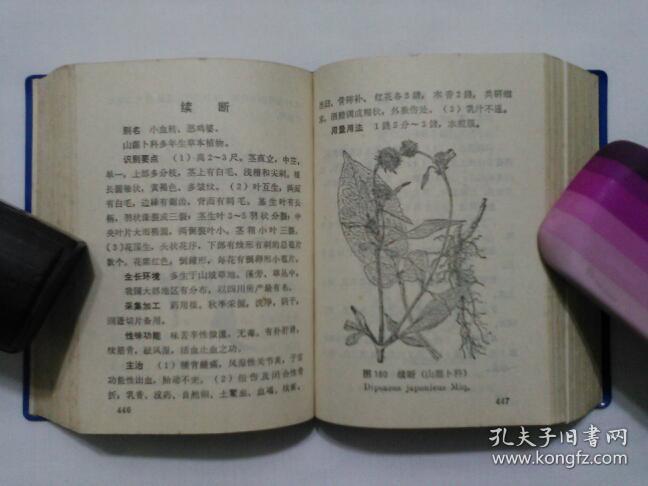 续 断
别名 小血转、恶鸡婆。
山萝卜科多年生草本植物。
识别要点 (1)高2~3尺。茎直立,中空,
单一,上部多分枝,茎上有白毛,浅槽和尖刺。根
长圆锥状,黄褐色,多皱纹。(2)叶互生;两面
有白毛,边缘有锯齿,背面有刺毛;基生叶有长
柄,羽状深裂或三裂;茎生叶3~5羽状分裂;中
央叶片大而椭圆,两侧裂叶小,茎稍小叶三裂。
(3)花顶生,头状花序,下部有线形有刺的总苞片
数个。花紫红色;倒锥形,每花有
生长环境 多生于山坡草地、溪旁、草丛中,
我国大部地区有分布,以四川所产最有名。
采集加工 药用根。秋季采掘,洗净,阴干,
润透切片备用。
性味功能 味苦辛性微温,无毒。有补肝肾,
续筋骨,祛风湿,活血止血之功。
主治 (1)腰背酸痛,风湿性关节炎,子宫
功能性出血,胎动不安。(2)扭伤及闭合性骨
折:乳香、没药、自然铜、土鳖虫、血竭、续断、
446
当归、骨碎补、红花各3钱,木香2钱,共研细
末,酒醋调成糊状,外敷伤处。(3)乳汁不通。
用量用法 1钱5分~3钱,水煎服。
图180 续断(山萝卜科)
Dipsacus japonicus Miq.
447
孔夫子旧书网
www.kongfz.com